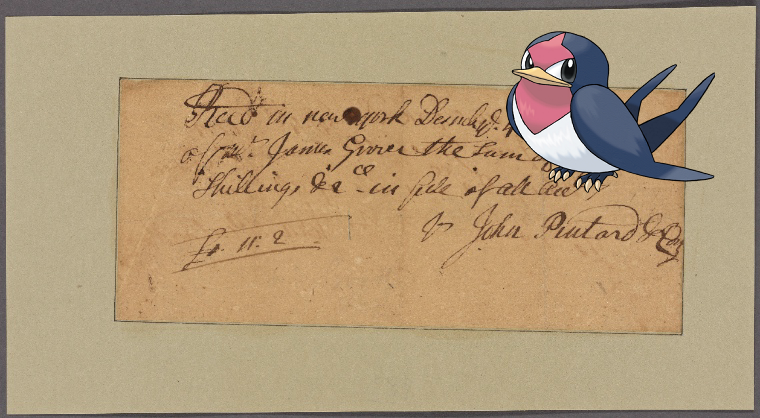 Recd in new york Decembr
of Capt. James Grier the sum
Shillings &c in full of all
John Pintard & Co
£ . 11. 2